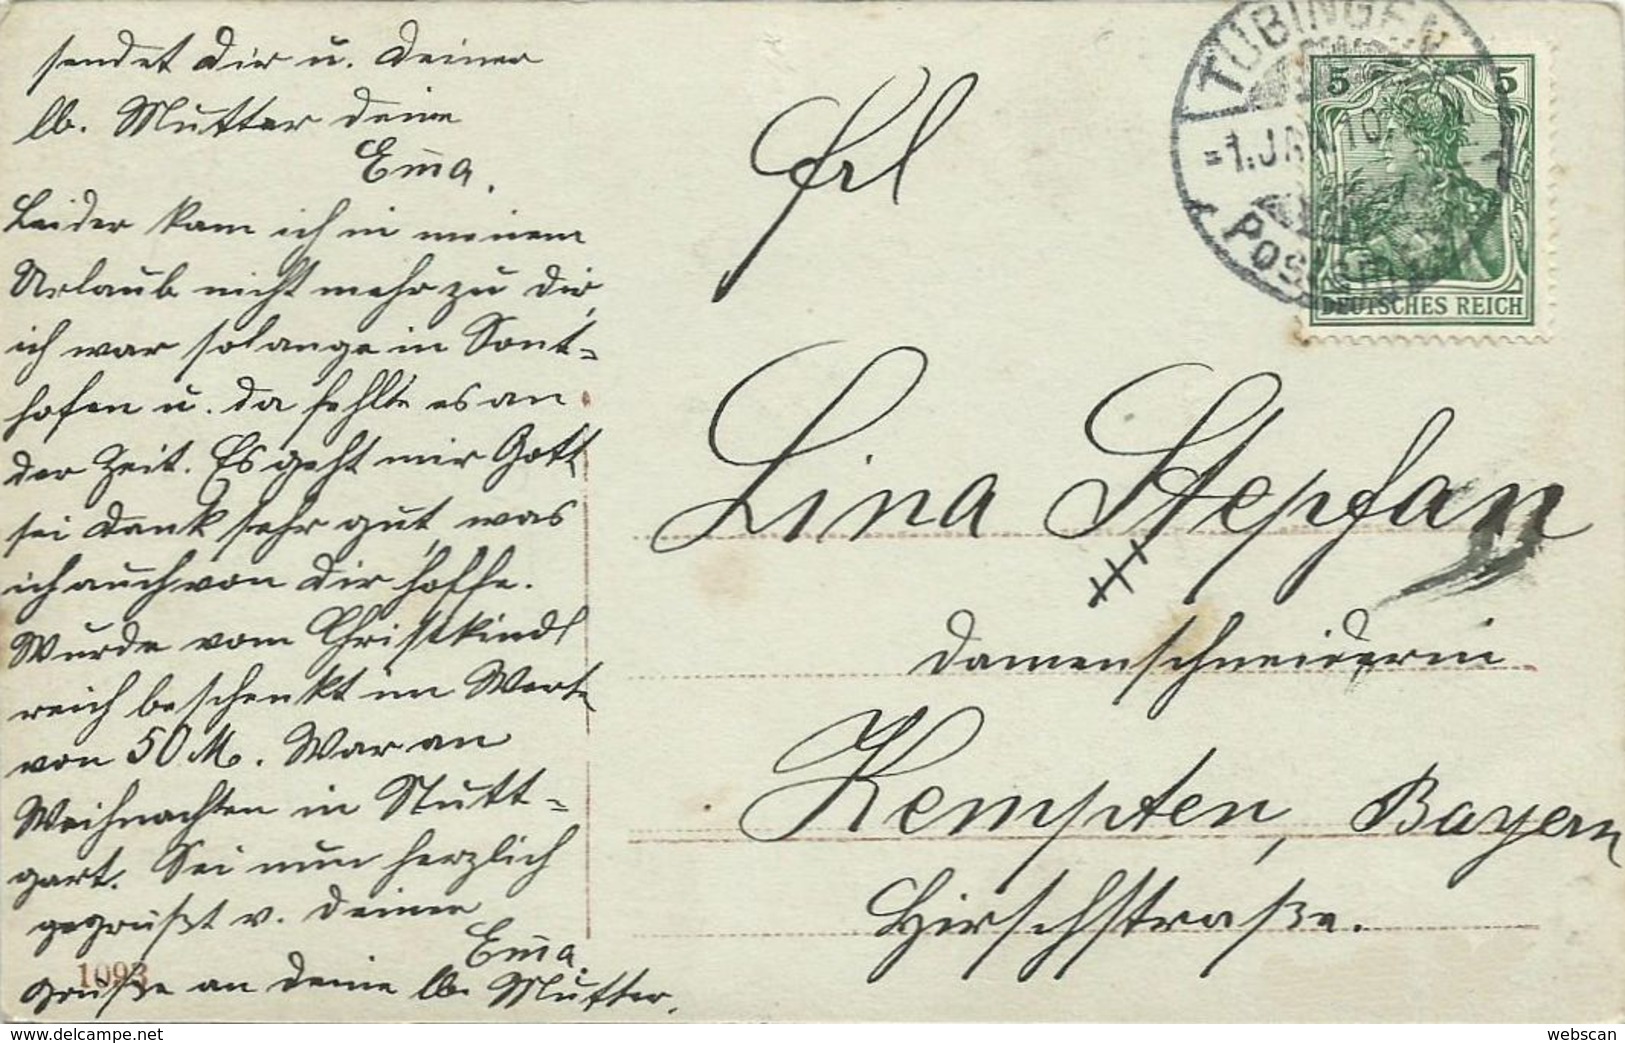 sendet Dir u. Deiner
lb. Mutter deine
Em̅a.
Leider kam ich in meinem
Urlaub nicht mehr zu Dir,
ich war solange in Sont-
hofen u. da fehlte es an
der Zeit. Es geht mir Gott
sei Dank sehr gut, was
ich auch von Dir hoffe.
Wurde vom Christkindl
reich beschenkt im Werte
von 50 M. War an
Weihnachten in Stutt-
gart. Sei nun herzlich
gegrüßt v. Deiner
Em̅a.
Grüße an deine lb. Mutter.
1093
TÜBINGEN
1. JAN.
5 5
DEUTSCHES REICH
Frl
Lina Stepfan
Damenschneiderin
Kempten, Bayern
Hirschstraße.
www.delcampe.net
webscan